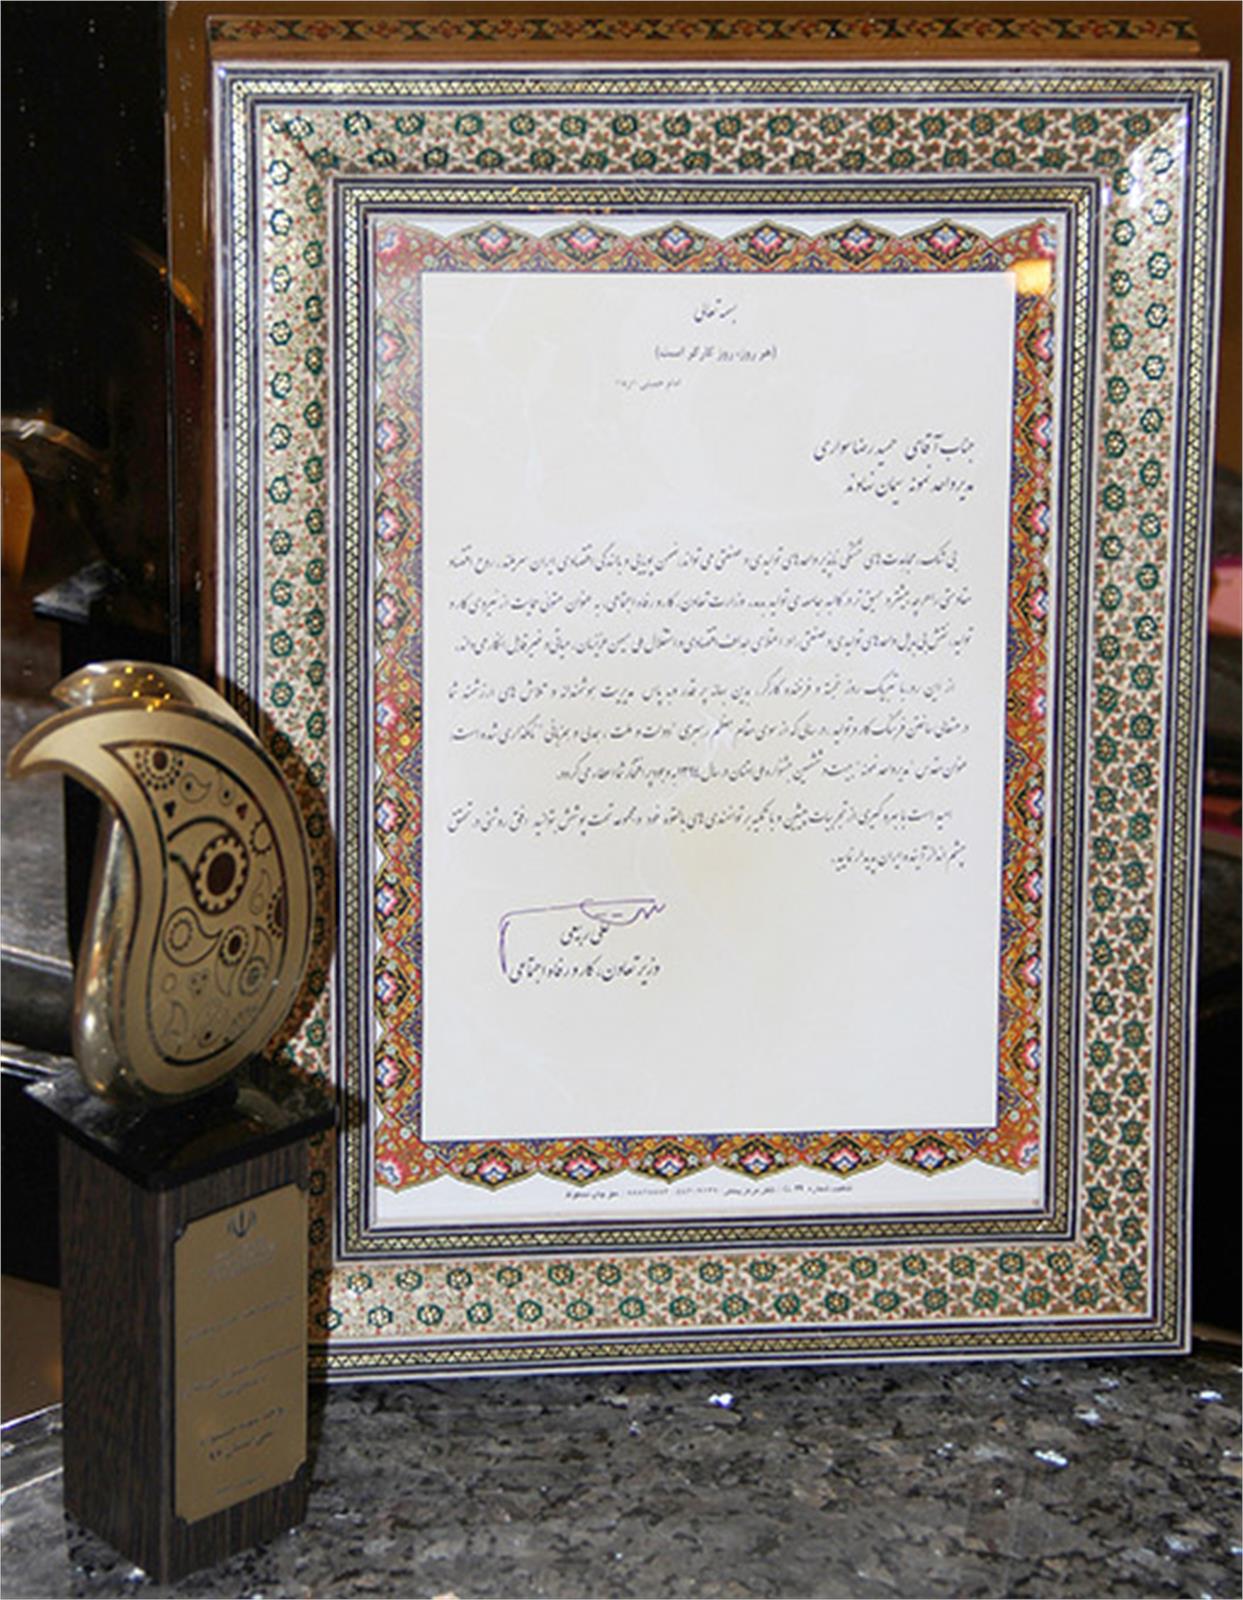 بسمه تعالی
(هر روز، روز کارگر است)
امام خمینی (ره)
جناب آقای حمید رضا سواری
مدیر واحد نمونه سیمان نهاوند
بی شک، مجاهدت های خستگی ناپذیر واحدهای تولیدی و صنعتی می تواند، ضمن پویایی و بالندگی اقتصادی ایران سربلند، روح اقتصاد
مقاومتی را هر چه بیشتر و عمیق تر در کالبد جامعه ی تولید بدمد. وزارت تعاون، کار و رفاه اجتماعی، به عنوان متولی حمایت از نیروی کار و
تولید، نقش بی بدیل واحدهای تولیدی و صنعتی را در اعتلای اهداف اقتصادی و استقلال ملی میهن عزیزمان، حیاتی و غیر قابل انکار می داند.
از این رو، با تبریک روز خجسته و فرخنده کارگر، بدین بهانه پر قدر و به پاس مدیریت هوشمندانه و تلاش های ارزشمند شما
در متعالی ساختن فرهنگ کار و تولید، در سالی که از سوی مقام معظم رهبری "دولت و ملت، همدلی و همزبانی" نامگذاری شده است
عنوان مقدس "مدیر واحد نمونه" بیست و ششمین جشنواره ملی امتنان در سال ۱۳۹۴ به وجود پر افتخار شما اعطا می گردد.
امید است با بهره گیری از تجربیات پیشین و با تکیه بر توانمندی های بالقوه خود و مجموعه تحت پوشش بتوانید افقی روشنی در تحقق
چشم انداز آینده ایران پدیدار نمایید.
علی ربیعی
وزیر تعاون، کار و رفاه اجتماعی